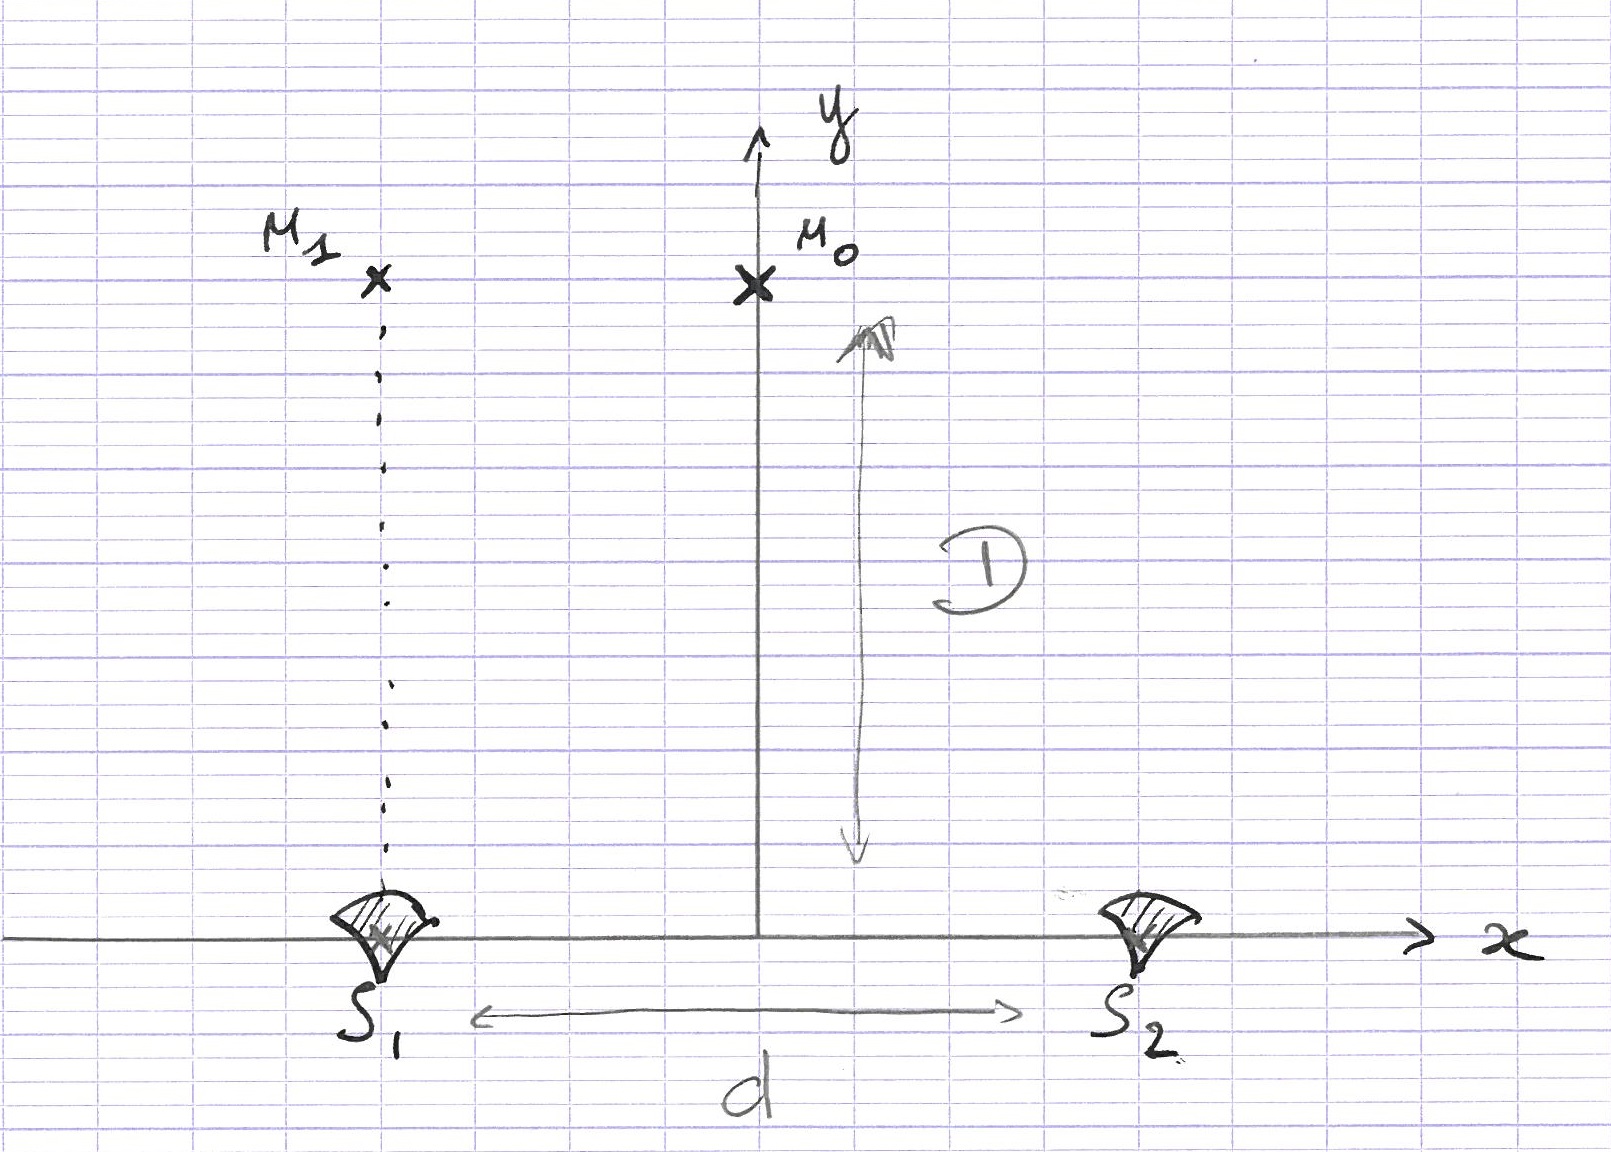 y
M₁
M₀
D
x
S₁
S₂
d